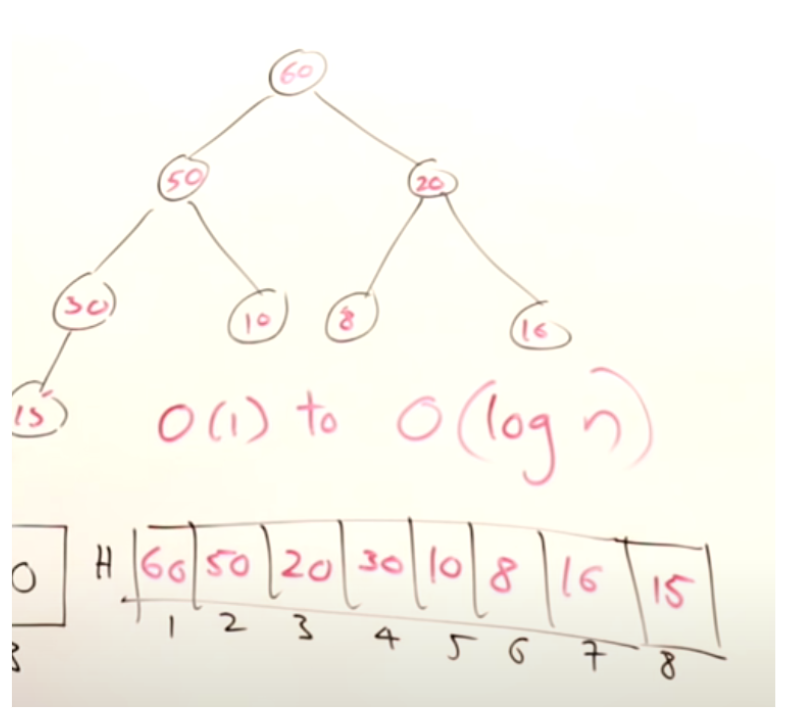 60
50 20
30 10 8 16
15
O(1) to O(log n)
0 H 60 50 20 30 10 8 16 15
1 2 3 4 5 6 7 8